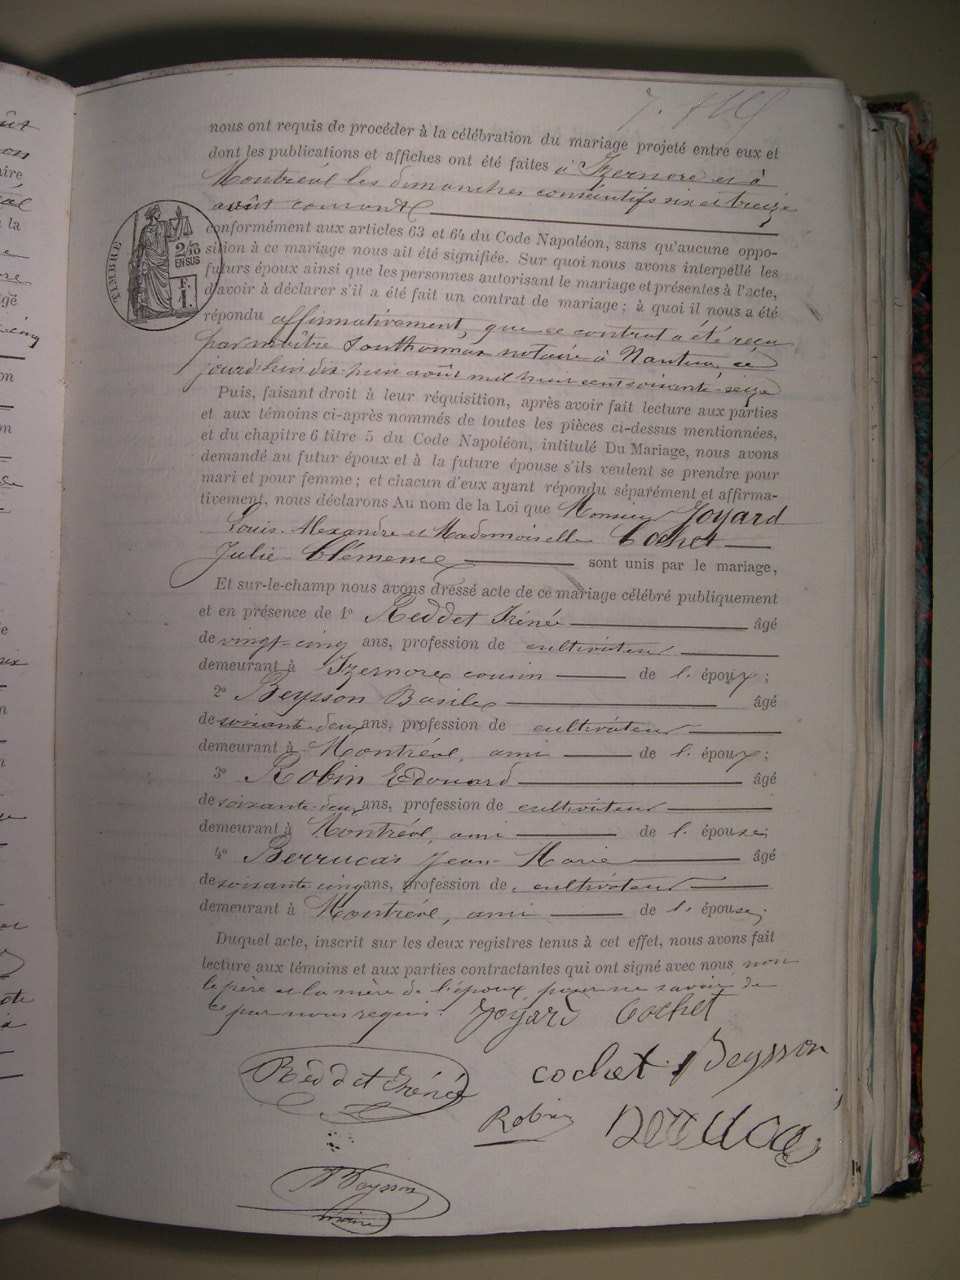 nous ont requis de procéder à la célébration du mariage projeté entre eux et
dont les publications et affiches ont été faites à Izernore et à
Montréal les dimanches consécutifs six et treize
août courant
conformément aux articles 63 et 64 du Code Napoléon, sans qu'aucune oppo-
sition à ce mariage nous ait été signifiée. Sur quoi nous avons interpellé les
futurs époux ainsi que les personnes autorisant le mariage et présentes à l'acte,
d'avoir à déclarer s'il a été fait un contrat de mariage ; à quoi il nous a été
répondu affirmativement, que ce contrat a été reçu
par maître Southonnax notaire à Nantua, ce
jourd'hui dix-huit août mil huit cent soixante-seize
TIMBRE
2/10
EN SUS
1 F.
Puis, faisant droit à leur réquisition, après avoir fait lecture aux parties
et aux témoins ci-après nommés de toutes les pièces ci-dessus mentionnées,
et du chapitre 6 titre 5 du Code Napoléon, intitulé Du Mariage, nous avons
demandé au futur époux et à la future épouse s'ils veulent se prendre pour
mari et pour femme ; et chacun d'eux ayant répondu séparément et affirma-
tivement, nous déclarons Au nom de la Loi que Monsieur Joyard
Louis-Alexandre et Mademoiselle Cochet
Julie Clémence sont unis par le mariage,
Et sur-le-champ nous avons dressé acte de ce mariage célébré publiquement
et en présence de 1° Reddet Irénée âgé
de vingt-cinq ans, profession de cultivateur
demeurant à Izernore cousin de l'époux ;
2° Beysson Basile âgé
de soixante-deux ans, profession de cultivateur
demeurant à Montréal, ami de l'époux ;
3° Robin Edouard âgé
de soixante-deux ans, profession de cultivateur
demeurant à Montréal, ami de l'épouse ;
4° Berrucaz Jean-Marie âgé
de soixante cinq ans, profession de cultivateur
demeurant à Montréal, ami de l'épouse ;
Duquel acte, inscrit sur les deux registres tenus à cet effet, nous avons fait
lecture aux témoins et aux parties contractantes qui ont signé avec nous non
le père et la mère de l'époux, pour ne savoir de
ce par nous requis. Joyard Cochet
Reddet Irénée cochet Beysson
Robin
Beysson
maire